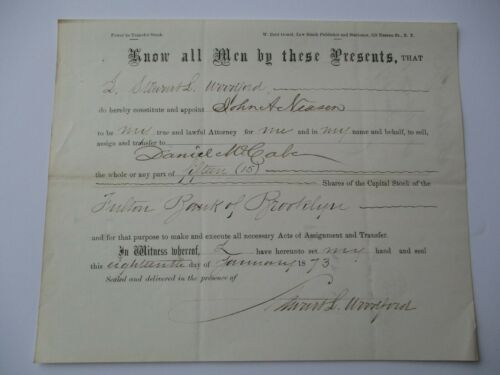 Power to Transfer Stock.
W. Reid Gould, Law Blank Publisher and Stationer, Nassau St., N. Y.
Know all Men by these Presents, THAT
I, Stewart L. Woodford
do hereby constitute and appoint John A Nexsen
to be my true and lawful Attorney for me and in my name and behalf, to sell,
assign and transfer to
Daniel McCabe
the whole or any part of fifteen (15)
Shares of the Capital Stock of the
Fulton Bank of Brooklyn
and for that purpose to make and execute all necessary Acts of Assignment and Transfer.
In Witness whereof, I have hereunto set my hand and seal
this eighteenth day of January 1873.
Sealed and delivered in the presence of
Stewart L. Woodford